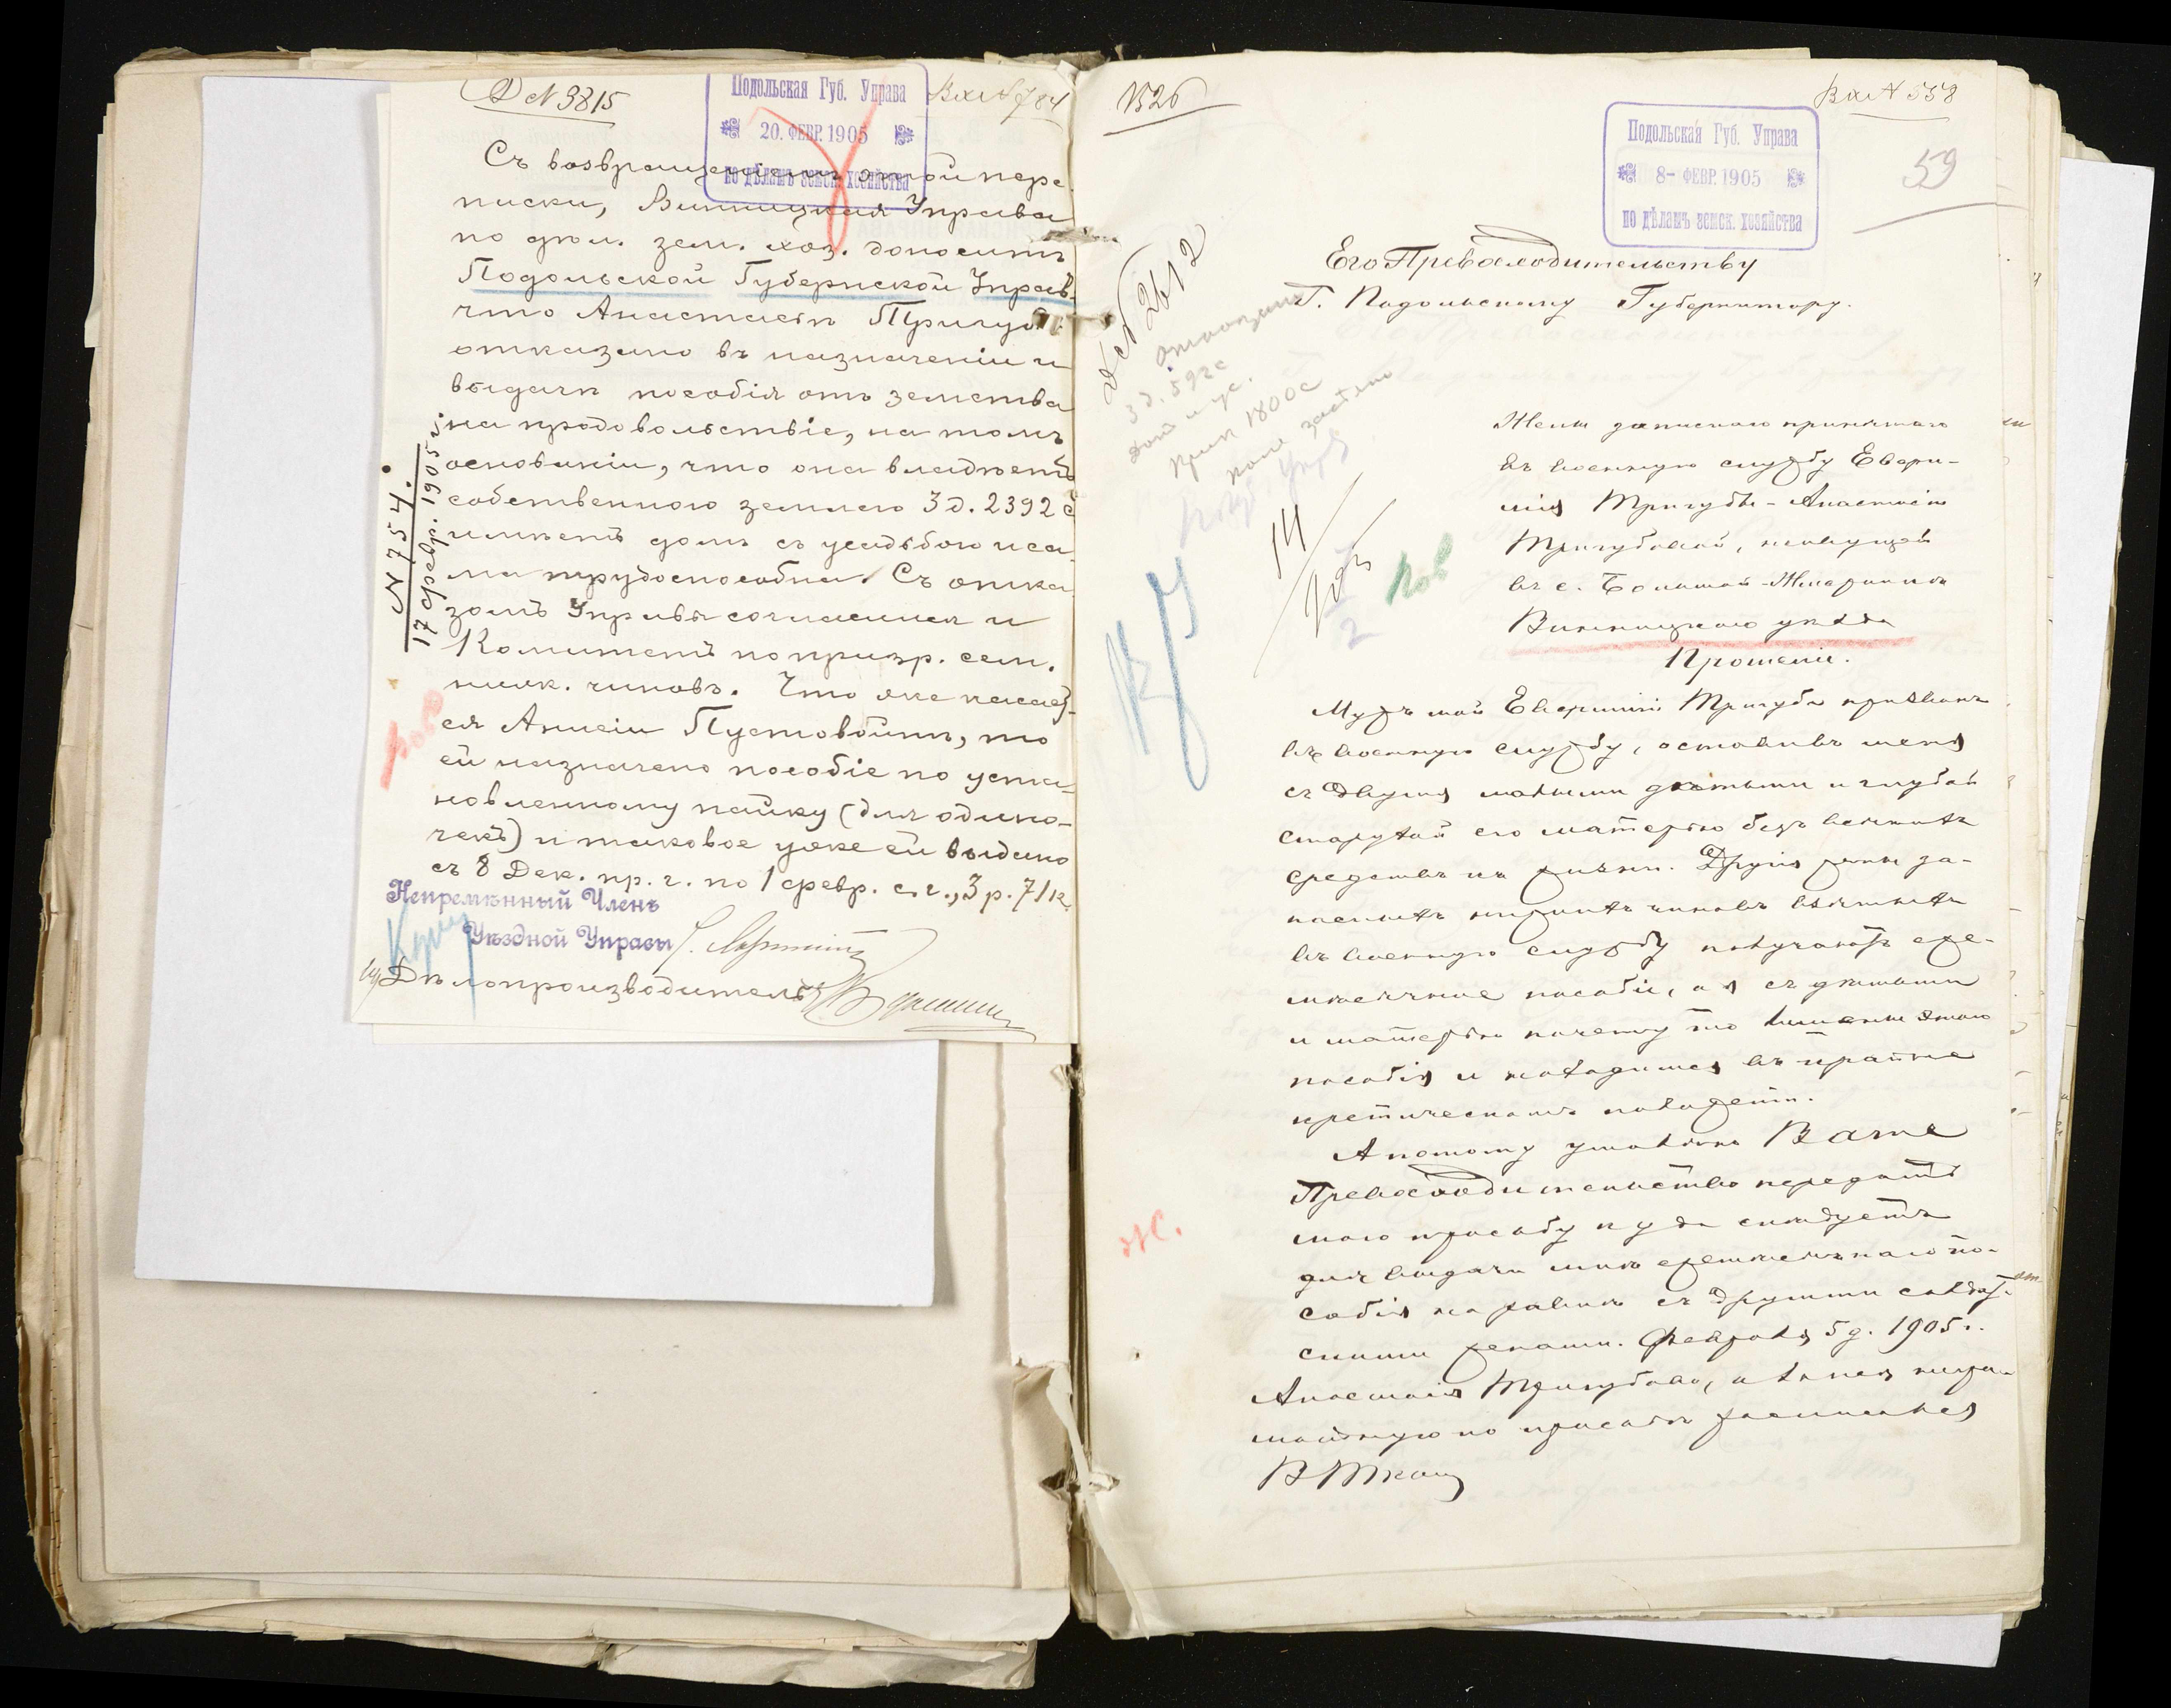 Д №3815
Вх №784
Подольская Губ. Управа
20. ФЕВР. 1905
по дѣламъ земск. хозяйства
Съ возвращеніемъ этой пере-
писки, Винницкая Управа
по дѣл. зем. хоз. доноситъ
Подольской Губернской Управѣ,
что Анастасіи Тригуб.
отказано въ назначеніи и
выдачѣ пособія отъ земства
на продовольствіе, на томъ
основаніи, что она владѣетъ
собственною землею 3 д. 2392 с
имѣетъ домъ съ усадьбою и са-
ма трудоспособна. Съ отка
зомъ Управы согласился и
Комитетъ по призр. сем.
нижн. чиновъ. Что же касает-
ся Анисіи Пустовойтъ, то
ей назначено пособіе по уста-
новленному пайку (для одино-
чекъ) и таковое уже ей выдано
съ 8 Дек. пр. г. по 1 февр. с. г., 3 р. 71 к.
Непремѣнный Членъ
Уѣздной Управы
Дѣлопроизводитель
№ 754.
17 февр. 1905 г.
В26
Вх № 558
Подольская Губ. Управа
8- ФЕВР. 1905
по дѣламъ земск. хозяйства
59
Его Превосходительству
Г. Подольскому Губернатору.
2612
14
2
Ж.
Жены запаснаго принятаго
въ военную службу Евфи-
мія Тригубы - Анастасіи
Тригубовой, живущей
въ с. Большой-Жмеринкѣ
Винницкаго уѣзда
Прошеніе.
Мужъ мой Евфимій Тригуба призванъ
въ военную службу, оставивъ меня
съ двумя малыми дѣтьми и глубокой
старухой его матерью безъ всякихъ
средствъ къ жизни. Другія жены за-
пасныхъ нижнихъ чиновъ взятыхъ
въ военную службу получаютъ еже-
мѣсячное пособіе, а я съ дѣтьми
и матерью почему то лишены этого
пособія и находимся въ крайне
критическомъ положеніи.
А потому умоляю Ваше
Превосходительство передать
мою просьбу куда слѣдуетъ
для выдачи мнѣ ежемѣсячнаго по-
собія на равнѣ съ другими солдат-
скими женами. Февраля 5 д. 1905 г.
Анастасія Тригубова, а за нея негра-
мотную по просьбѣ росписался
В Ткачъ